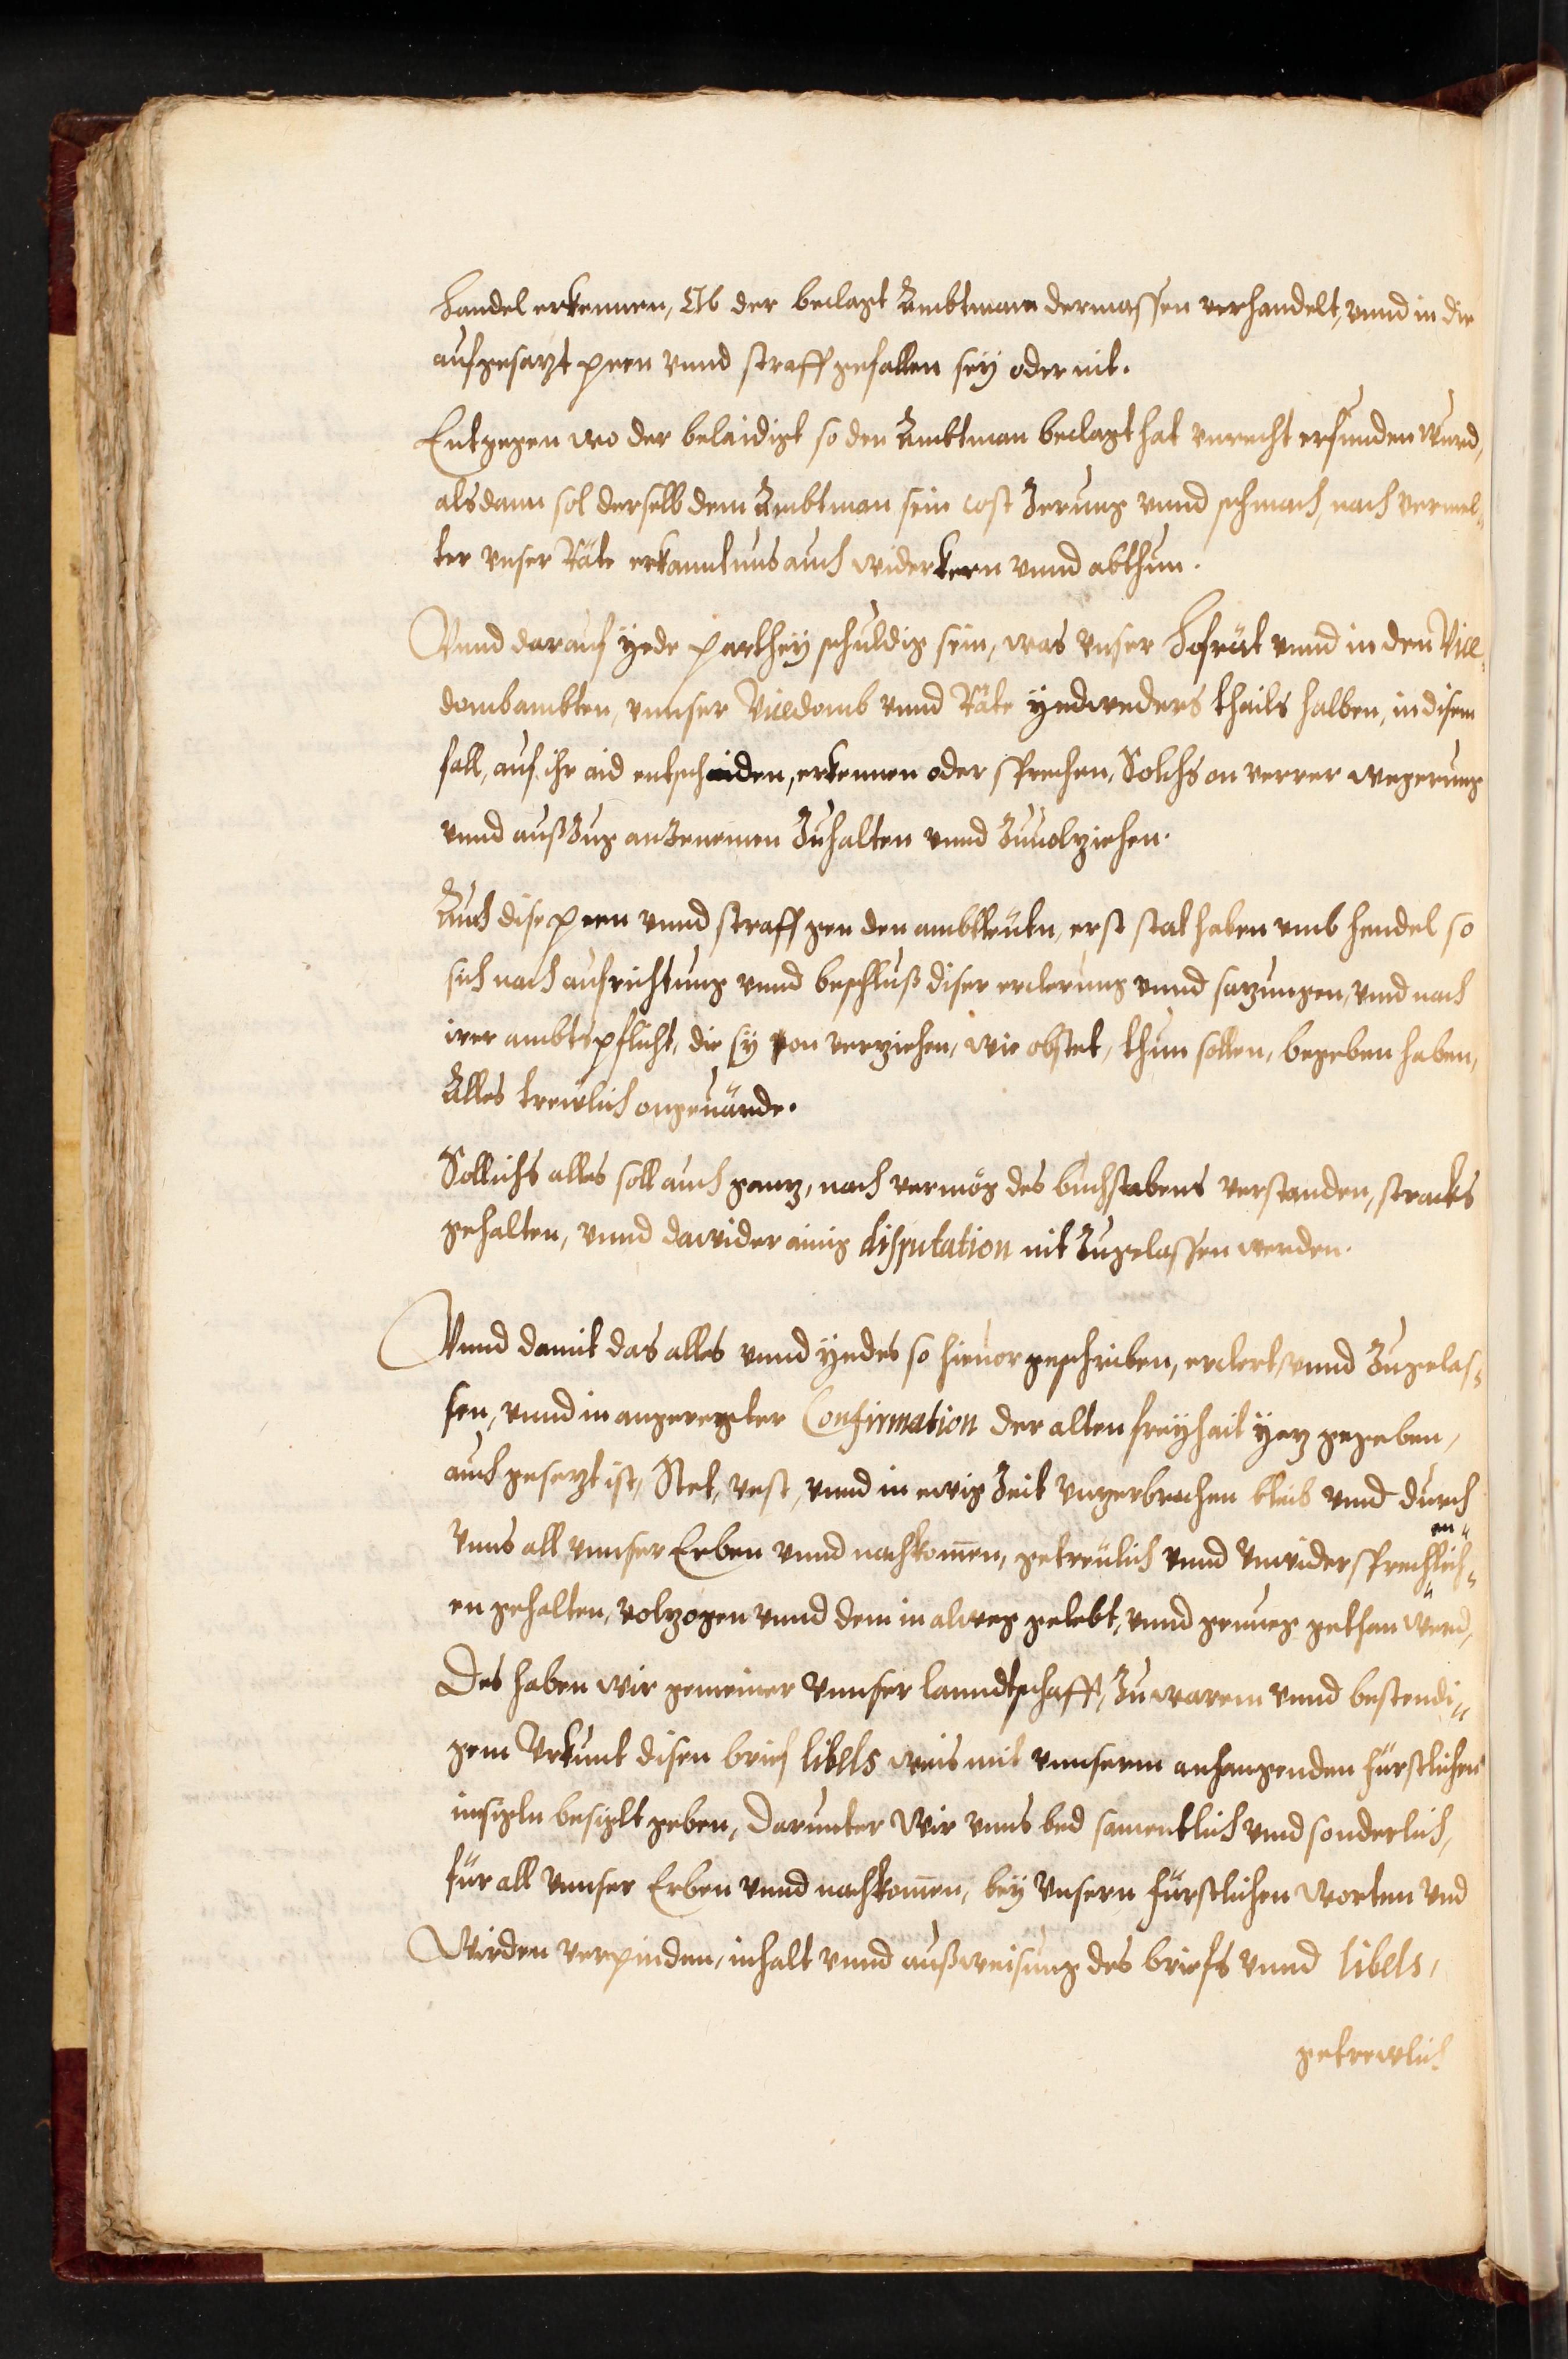 handel erkennen, Ob der beclagt Ambtman dermassen verhandelt, vnnd in die
aufgesatzt peen vnnd straff gefallen sey oder nit.
Entgegen wo der belaidigt so den Ambtman beclagt hat vnrecht erfunden wurd,
alsdann sol derselb dem Ambtman sein cost Zerung vnnd schmach, nach vermel¬
ter vnser Räte erkanntnus auch widerkern vnnd abthun.
Vnnd darauf yede parthey schuldig sein, was vnser Hofrät vnnd in den Vice¬
dombambten, vnnser Vicedomb vnnd Räte yedweders thails halben, in disem
fall, auf ihr aid entschaiden, erkennen oder sprechen, Solchs on verrer wegerung
vnnd außzug anZenemen Zuhalten vnnd Zuuolziehen.
Auch dise peen vnnd straff gen den ambtleütn, erst stat haben vmb hendel so
sich nach aufrichtung vnnd beschluß diser erclerung vnnd satzungen, vnd nach
irer ambtspflicht, die sy on verziehen, wie obstet, thun sollen, begeben haben,
Alles trewlich ongeuärde.
Sollichs alles soll auch gantz, nach vermög des buchstabens verstanden, stracks
gehalten, vnnd dawider ainig disputation nit Zugelassen werden.
Vnnd damit das alles vnnd yedes so hieuor geschriben, erclert, vnnd Zugelas¬
sen, vnnd in angeregter Confirmation der alten freyhait yetz gegeben,
auch gesetzt ist, Stet, vest, vnnd in ewig Zeit vnzerbrochen bleib vnnd durch
vnns all vnnser Erben vnnd nachkomen, getreülich vnnd vnwidersprechlich¬
en gehalten, volzogen vnnd dem in alweg gelebt, vnnd genueg gethan werd,
Des haben wir gemeiner vnnser lanndtschafft, Zu warem vnnd bestendi¬
gem Vrkunt disen brief libells weis mit vnnserm anhangenden fürstlichen
insigeln besiglt geben, Darunter Wir vnns bed samentlich vnd sonderlich,
für all vnnser Erben vnnd nachkomen, bey vnsern fürstlichen worten vnd
Wirden verpinden, inhalt vnnd außweisung des briefs vnnd libels,
getrewlich